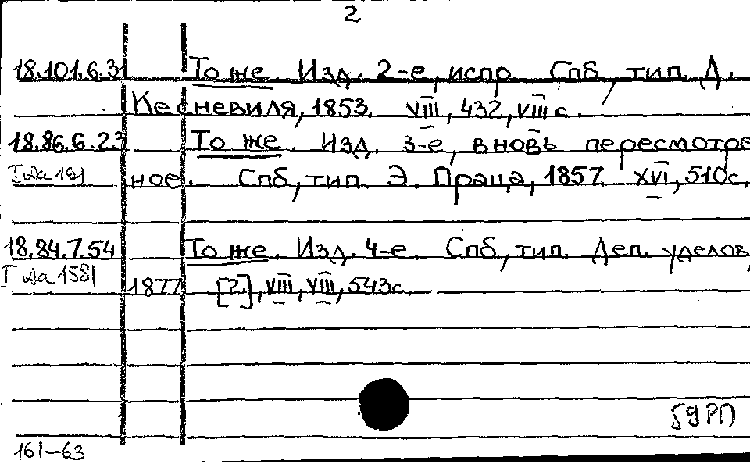 2
18.101.6.31 То же. Изд. 2-е, испр. Спб, тип. Д.
Кесневиля, 1853. VIII, 432, VIII с.
18.86.6.23 То же. Изд. 3-е, вновь пересмотре
ное. Спб, тип. Э. Праца, 1857. XVI, 510с.
18.84.7.54 То же. Изд. 4-е. Спб, тип. Деп. уделов,
1877. [2], VIII, VIII, 543с.
161-63